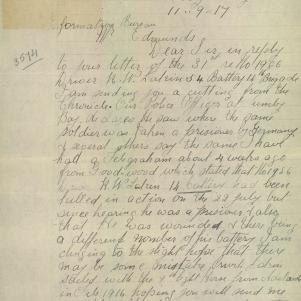 11-9-17
formation Bureau
Edmunds
3594
Dear Sir, in reply
to your letter of the 31st re No 1956
Driver R. W. 54 Battery 14 Brigade
I am sending you a cutting from the
Chronicle. Our Police Officer at
Bay, he saw where the same
soldier was taken a prisoner by Germany
& several others say the same I have
had a Telegraham about 4 weeks ago
from Goodwood which stated that No 1956
R. W. 14 battery had been
killed in action on the 23 July but
since hearing he was a prisoner & also
that he was wounded & there being
a different number of his battery I am
clinging to the slight hope that there
may be some mistake
with the Light Horse from
in Feb 1916 hoping you will send me